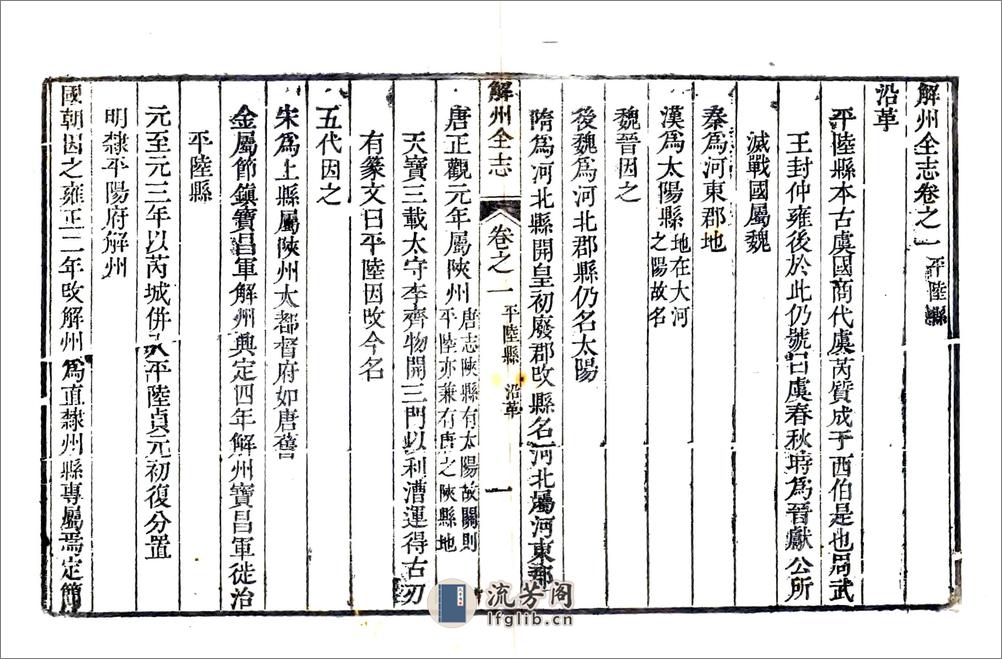 解州全志卷之一 平陸縣
沿革
平陸縣本古虞國商代虞芮質成于西伯是也周武
王封仲雍後於此仍號曰虞春秋時為晉獻公所
滅戰國屬魏
秦為河東郡地
漢為太陽縣 地在大河
之陽故名
魏晉因之
後魏為河北郡縣仍名太陽
隋為河北縣開皇初廢郡改縣名河北屬河東郡
解州全志 卷之一 平陸縣 沿革 一
唐正觀元年屬陝州 唐志陝縣有太陽故關則
平陸亦兼有唐之陝縣地
天寶三載太守李齊物開三門以利漕運得古刃
有篆文曰平陸因改今名
五代因之
宋為上縣屬陝州大都督府如唐舊
金屬節鎮寶昌軍解州興定四年解州寶昌軍徙治
平陸縣
元至元三年以芮城併入平陸貞元初復分置
明隸平陽府解州
國朝因之雍正二年改解州為直隸州縣專屬焉定簡
流芳阁
lfglib.cn